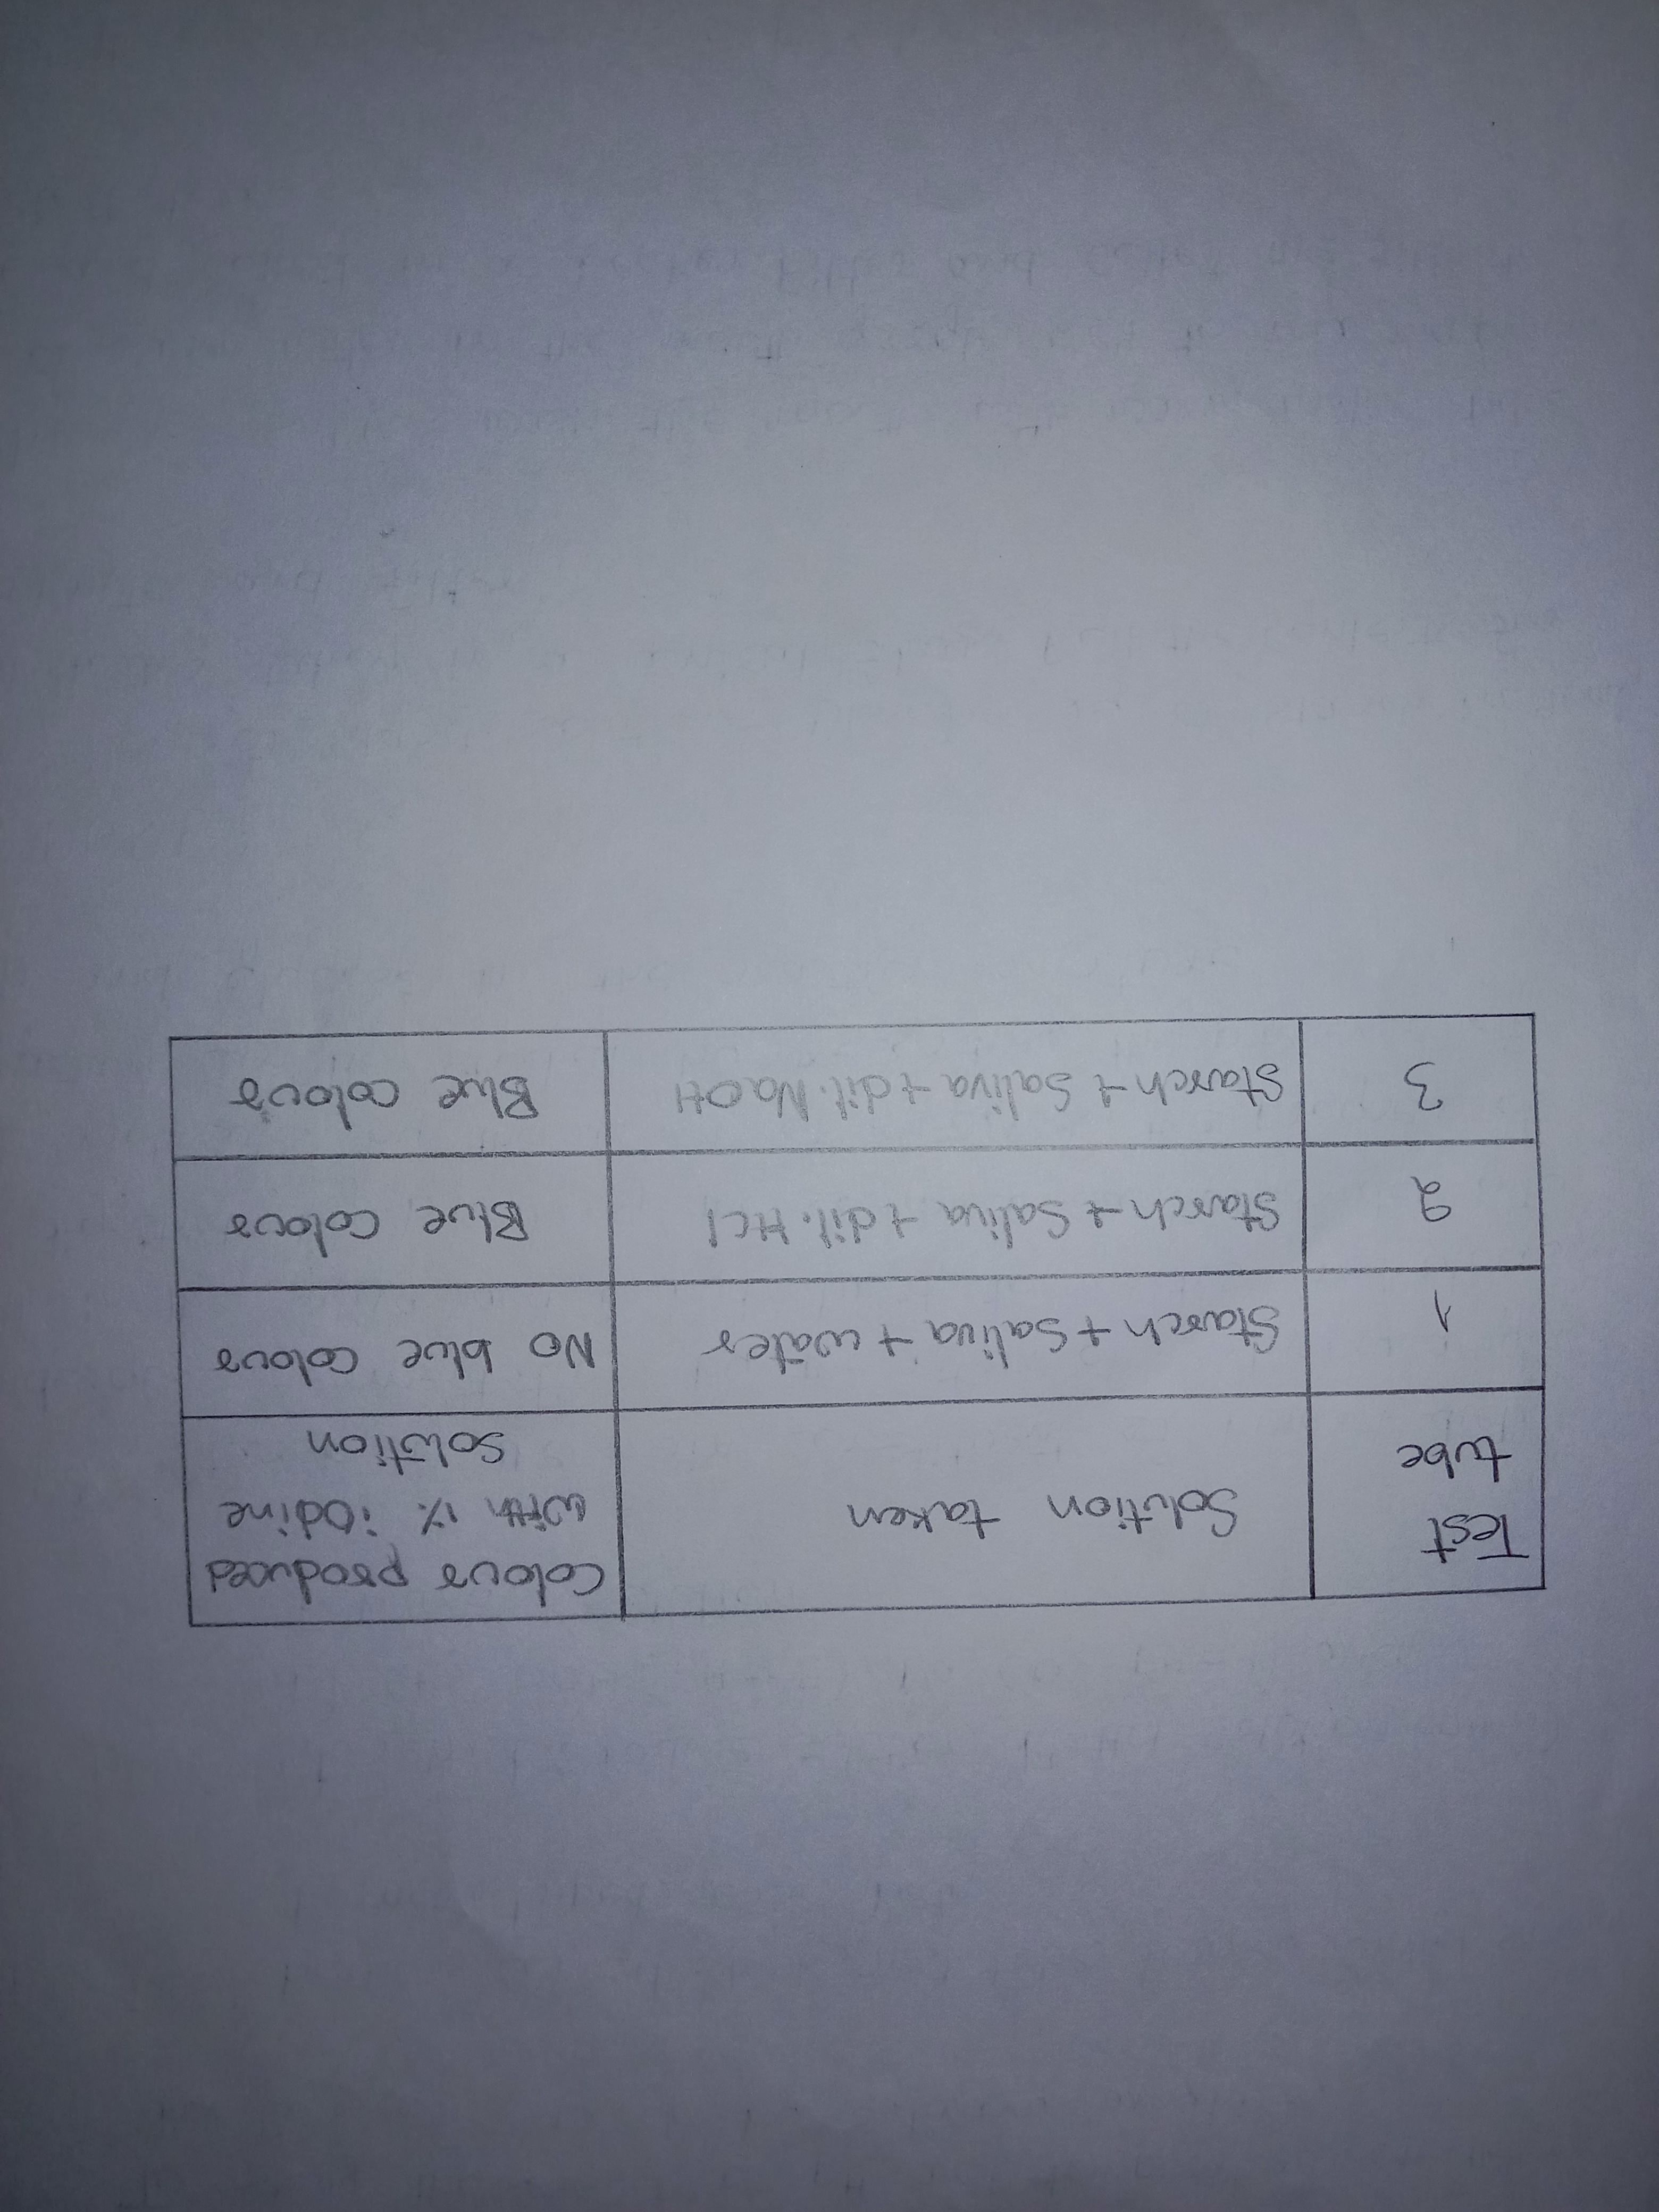 Test tube | Solution taken | Colour produced with 1% iodine Solution
1 | Starch + Saliva + water | No blue colour
2 | Starch + Saliva + dil. HCl | Blue colour
3 | Starch + Saliva + dil. NaOH | Blue colour